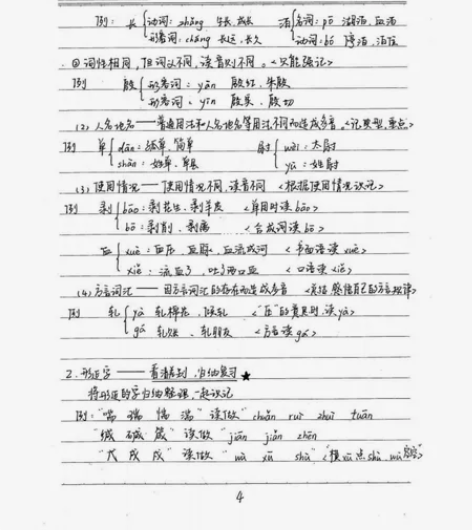 例: 长 { 动词: zhǎng 生长, 成长 泊 { 名词: pō 湖泊, 血泊
形容词: cháng 长远, 长久 动词: bó 停泊, 泊位
② 词性相同, 但词义不同, 读音则不同。<只能强记>
例 殷 { 形容词: yān 殷红, 朱殷
形容词: yīn 殷实, 殷切
(2) 人名地名——普通用法和人名地名等用法不同而造成多音, <记典型, 重点>
例 单 { dān: 孤单, 简单 尉 { wèi: 太尉
shàn: 姓单, 单县 yù: 姓尉
(3) 使用情况——使用情况不同, 读音不同 <根据使用情况识记>
例 剥 { bāo: 剥花生, 剥羊皮 <单用时读 bāo>
bō: 剥削, 剥离 <合成词读 bō>
血 { xuè: 血压, 血液, 血流成河 <书面语读 xuè>
xiě: 流血了, 吐了两口血 <口语读 xiě>
(4) 方言词汇——因方言词汇的存在而造成多音
例 轧 { yà 轧棉花, 倾轧 <"压"的意思时, 读 yà>
gá 轧账, 轧朋友 <方言读 gá>
2. 形近字——看清差别, 归纳复习 ★
将形近的字归纳整理, 一起识记
例: "喘 瑞 惴 湍" 读做 " chuǎn ruì zhuì tuān
"缄 碱 箴" 读做 " jiān jiǎn zhēn
"戊 戌 戍" 读做 " wù xū shù" <横 xū 点 shù wù
4